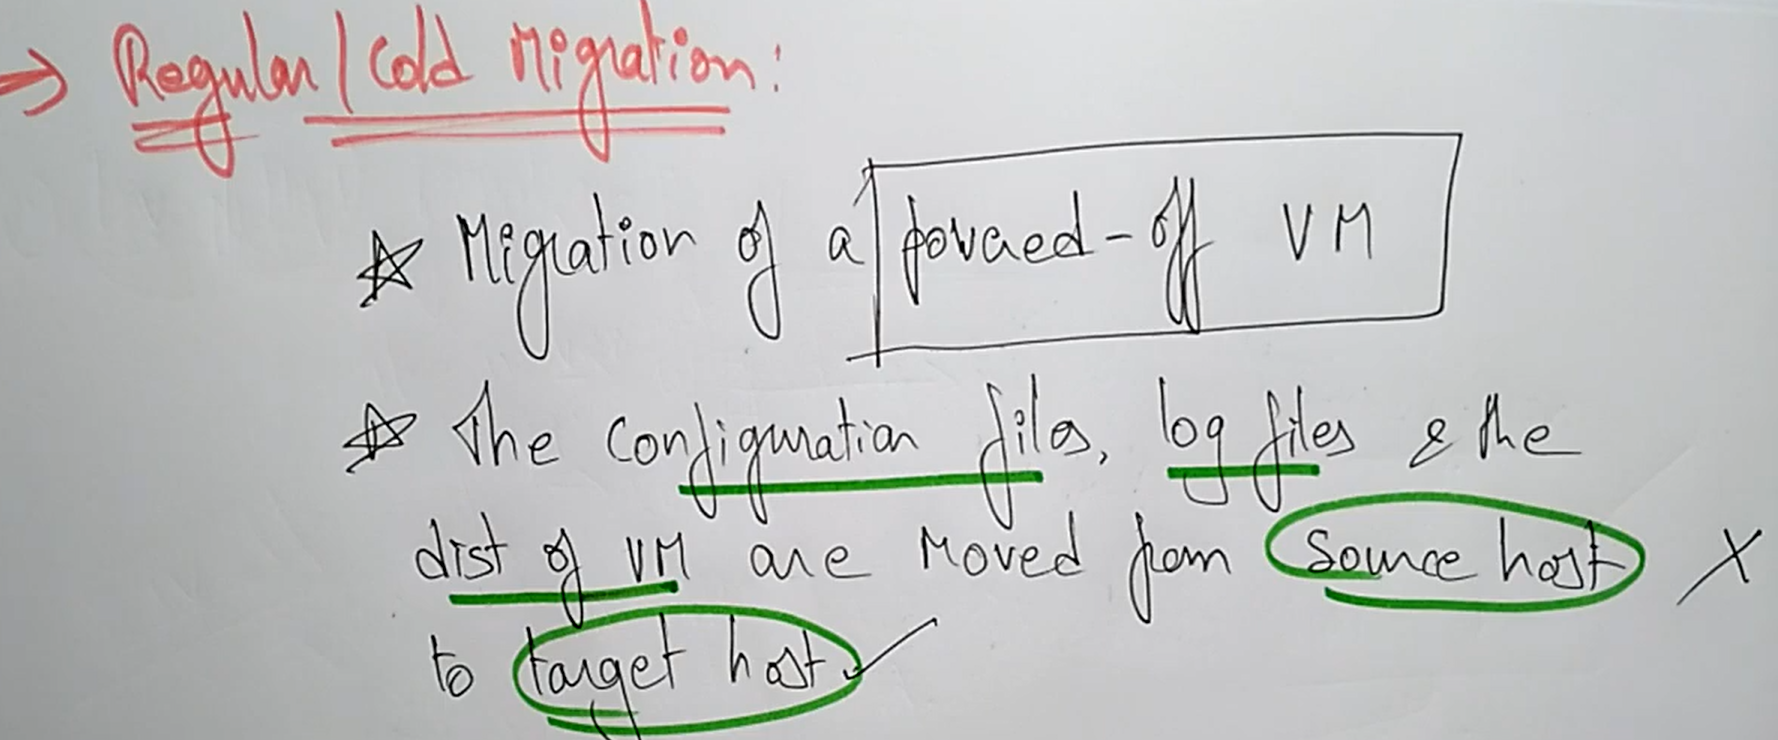 → Regular / Cold Migration:
☆ Migration of a powered-off VM
☆ The configuration files, log files & the
dist of VM are moved from source host X
to target host ✓